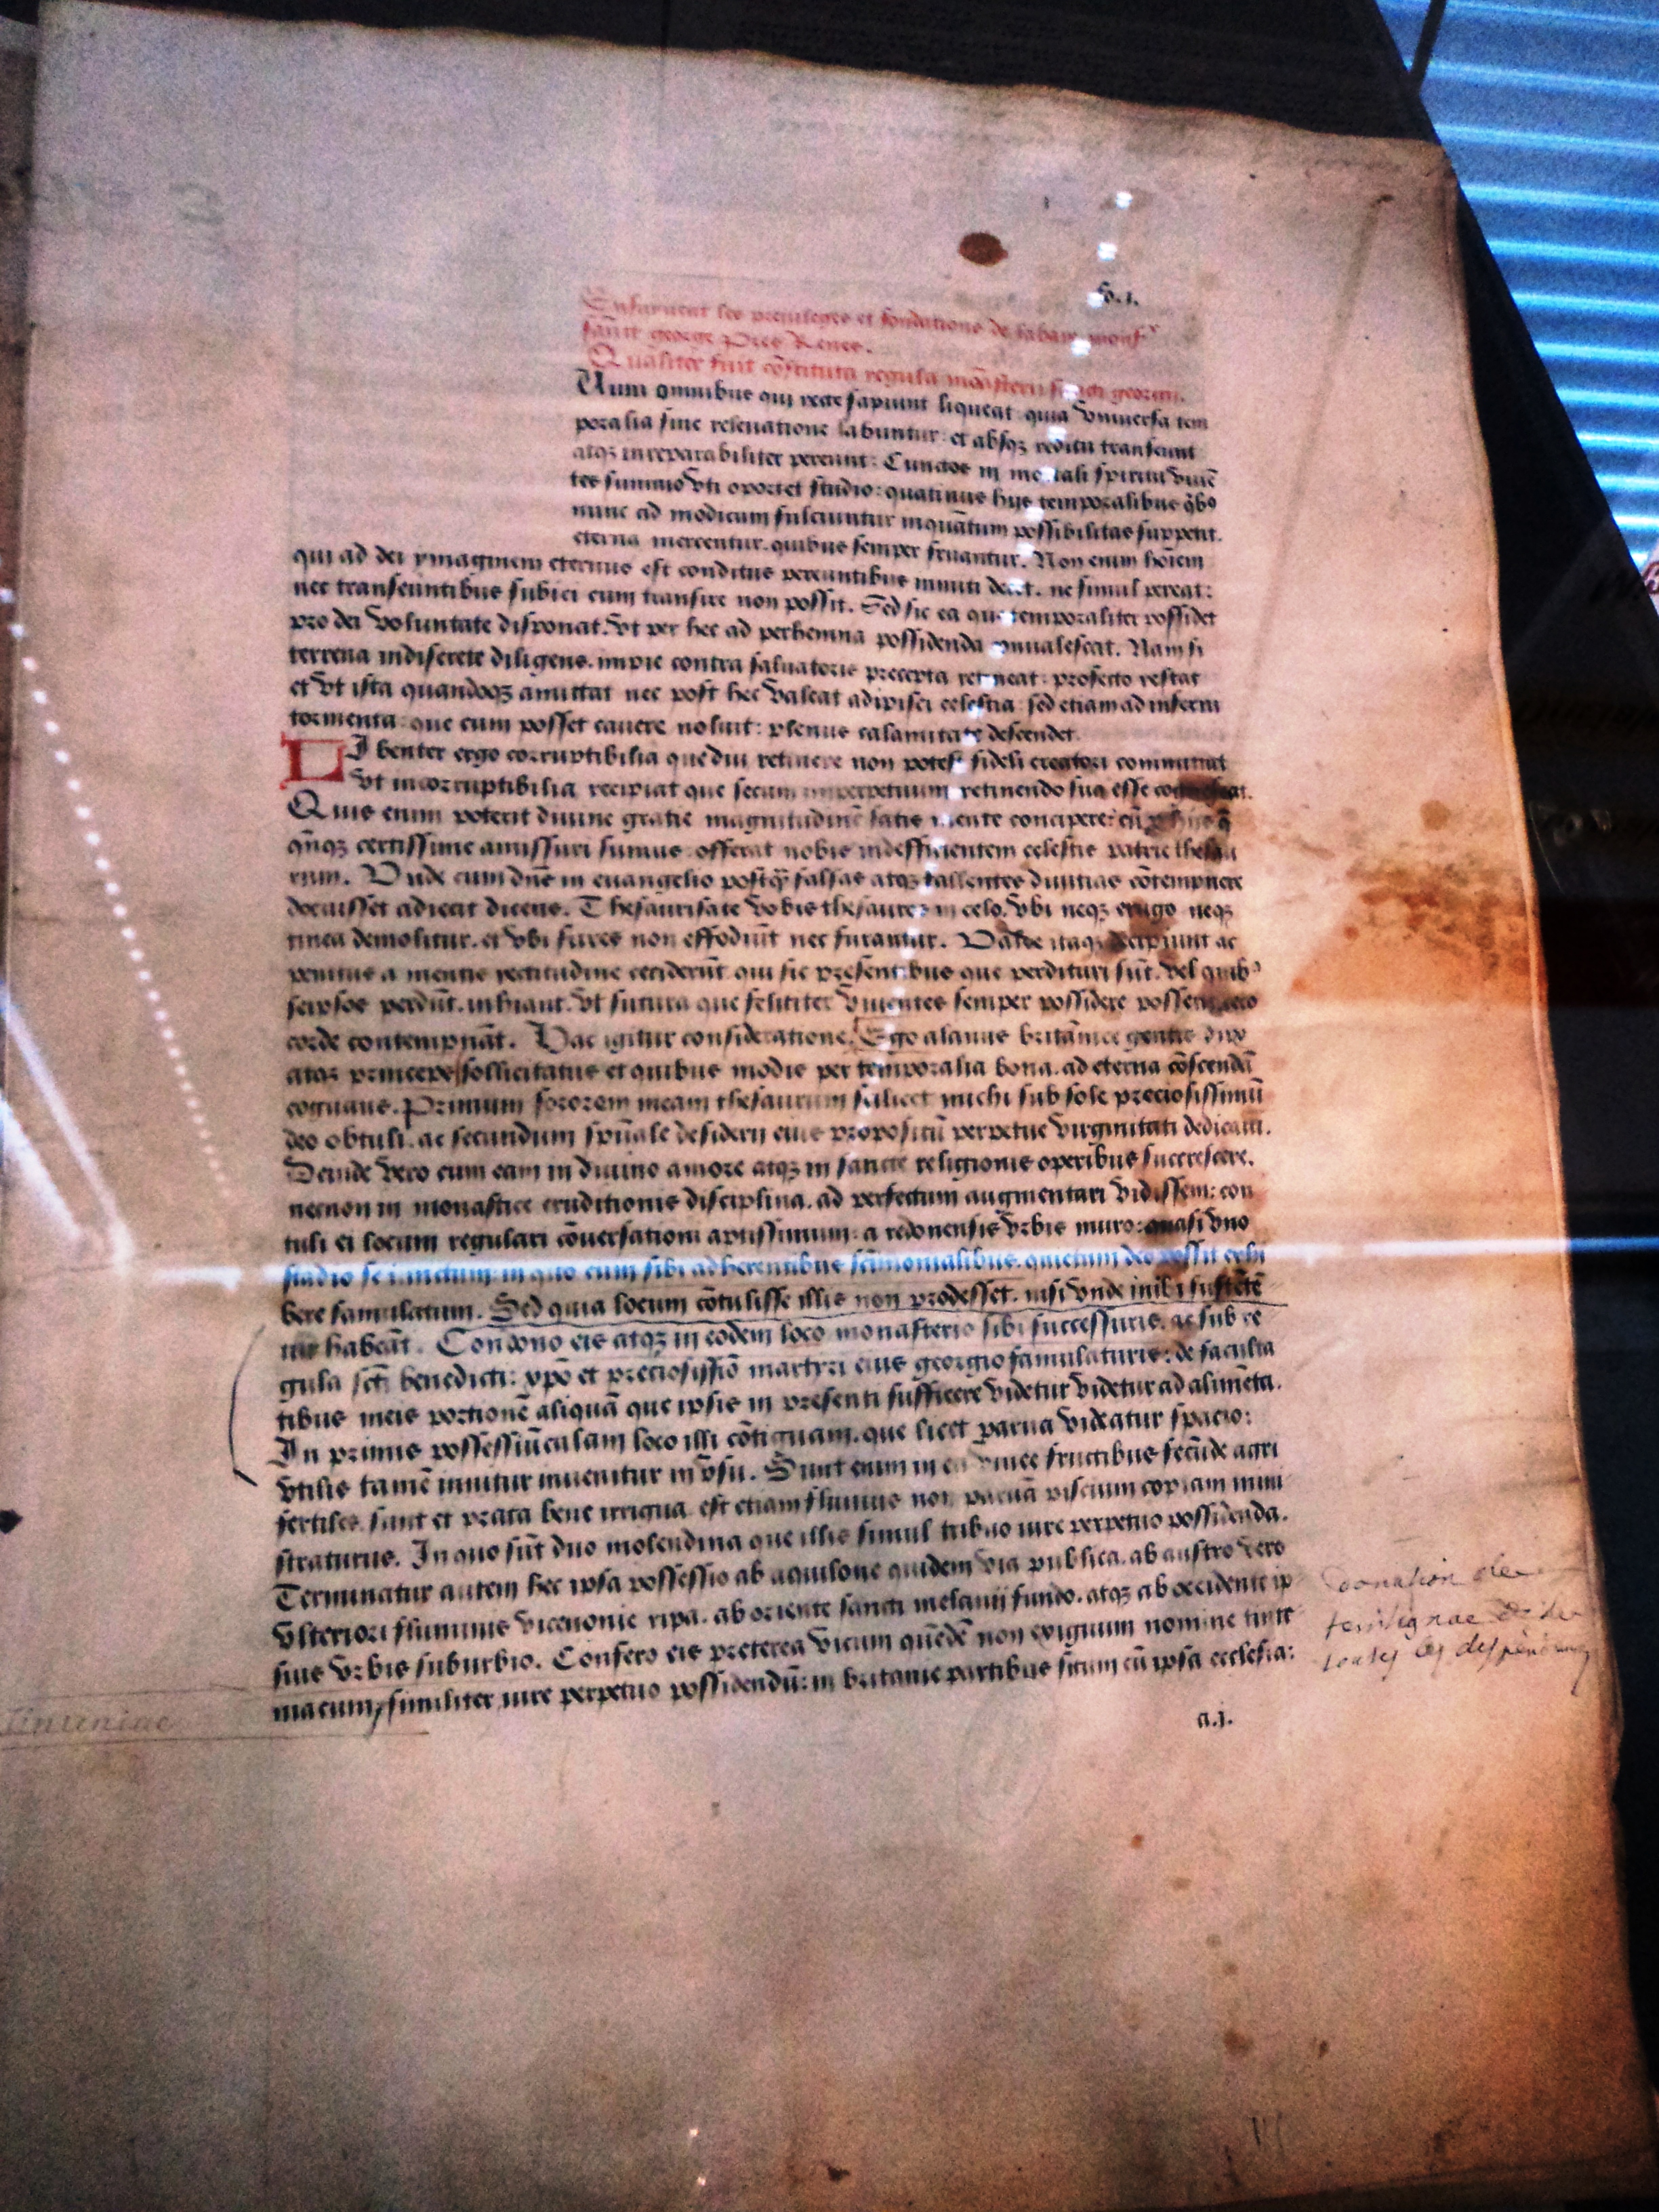 fo. 1.
Ensuruent les preuileges et fondations de labaie monsr
sainct george Pres Renes.
Qualiter fuit cōstituta regula monasterii sancti georgii.
Cum omnibus qui recte sapiunt liqueat quia vniuersa tem
poralia sine releuatione labuntur et absqꝫ reditu transeunt
atqꝫ irreparabiliter pereunt: Cunctos in mortali spiritu viuē
tes summo vti oportet studio: quatinus hijs temporalibus qͥbꝰ
nunc ad modicum fulciuntur inquātum possibilitas suppetit.
eterna mercentur. quibus semper fruantur. Non enim hoīem
qui ad dei ymaginem eternus est conditus pereuntibus inniti decet. ne simul pereat:
nec transeuntibus subici cum transire non possit. Sed sic ea que temporaliter possidet
pro dei voluntate disponat. vt per hec ad perhenna possidenda conualescat. Nam si
terrena indiscrete diligens. impie contra saluatoris precepta retineat: profecto restat
et vt ista quandoqꝫ amittat nec post hec valeat adipisci celestia: sed etiam ad inferni
tormenta: que cum posset cauere noluit: plenus calamitate descendet.
LIbenter ergo corruptibilia que diu retinere non potest fideli creatori committat
vt incorruptibilia recipiat que secum imperpetuum retinendo sua esse
Quis enim poterit diuine gratie magnitudinē satis mente concipere: cū
qn̄qꝫ certissime amissuri sumus offerat nobis indefficientem celestis patrie thesau
rum. Vnde cum dn̄s in euangelio postqͣ falsas atqꝫ fallentes diuitias cōtempnere
docuisset adiecit dicens. Thesaurisate vobis thesauros in celo. vbi neqꝫ erugo neqꝫ
tinea demolitur. et vbi fures non effodiūt nec furantur. Valde itaqꝫ decipiunt ac
penitus a mentis rectitudine ceciderūt qui sic presentibus que perdituri sūt. vel quibꝰ
seipsos perdūt. inhiant. vt futura que feliciter viuentes semper possidere possent
corde contempnāt. Hac igitur consideratione. Ego alanus britānice gentis dux
atqꝫ princeps sollicitatus et quibus modis per temporalia bona. ad eterna cōscendā
cogitans. Primum sororem meam thesaurum scilicet michi sub sole preciosissimū
deo obtuli. ac secundum spūale desiderij eius propositū perpetue virginitati dedicaui.
Deinde vero cum eam in diuino amore atqꝫ in sancte religionis operibus succrescere.
necnon in monastice eruditionis disciplina. ad perfectum augmentari vidissem: con
tuli ei locum regulari cōuersationi aptissimum: a redonensis vrbis muro: quasi vno
stadio seiunctum in quo cum sibi adherentibus sc̄imonialibus. quietum deo possit exhi
bere famulatum. Sed quia locum cōtulisse illis non prodesset. nisi vnde inibi sustētē
tur habeāt. Condono eis atqꝫ in eodem loco monasterio sibi successuris. ac sub re
gula sct̄i benedicti: xpō et preciosissīo martyri eius georgio famulaturis: de faculta
tibus meis portionē aliquā que ipsis in presenti sufficere videtur videtur ad alimēta.
In primis possessiūculam loco illi cōtiguam. que licet parua videatur spacio:
vtilis tamē inuitur inuenitur in vsu. Sunt enim in ea vinee fructibus fecūde agri
fertiles. sunt et prata bene irrigua. est etiam fluuius non paruā piscium copiam mini
straturus. In quo sūt duo molendina que illis simul tribuo iure perpetuo possidenda.
Terminatur autem hec ipsa possessio ab aquilone quidem via publica. ab austro vero
vlteriori fluminis vicenonie ripa. ab oriente sancti melanij fundo. atqꝫ ab occidente ip
sius vrbis suburbio. Confero eis preterea vicum quēdē non exiguum nomine tinte
niacum, similiter iure perpetuo possidendū: in britanie partibus situm cū ipsa ecclesia:
a.j.
Donation de
tenteniac &
toutes les dependences
Tinteniac